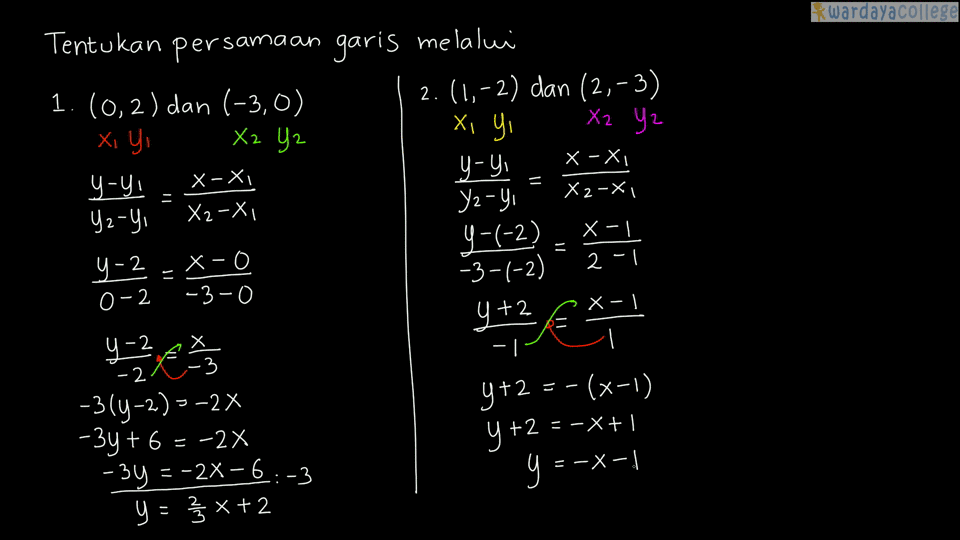 wardayacollege
Tentukan persamaan garis melalui
1. (0,2) dan (-3,0)
x₁ y₁ x₂ y₂
(y-y₁)/(y₂-y₁) = (x-x₁)/(x₂-x₁)
(y-2)/(0-2) = (x-0)/(-3-0)
(y-2)/-2 = x/-3
-3(y-2) = -2x
-3y+6 = -2x
-3y = -2x-6 :-3
y = 2/3 x+2
2. (1,-2) dan (2,-3)
x₁ y₁ x₂ y₂
(y-y₁)/(y₂-y₁) = (x-x₁)/(x₂-x₁)
(y-(-2))/(-3-(-2)) = (x-1)/(2-1)
(y+2)/-1 = (x-1)/1
y+2 = -(x-1)
y+2 = -x+1
y = -x-1